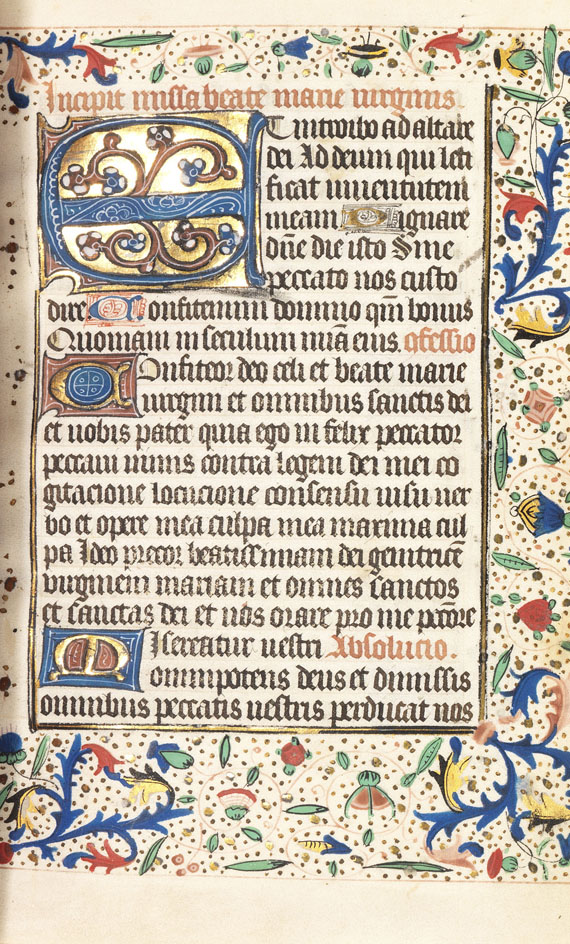 Incipit missa beate marie uirginis.
Et introibo ad altare
dei Ad deum qui leti
ficat iuuentutem
meam Dignare
dn̄e die isto Sine
peccato nos custo
dire Confitemini domino qm̄ bonus
Quoniam in seculum mīa eius. ꝯfessio
Confiteor deo celi et beate marie
uirgini et omnibus sanctis dei
et uobis pater quia ego in felix peccator
peccaui nimis contra legem dei mei co
gitacione locucione consensu uisu uer
bo et opere mea culpa mea maxima cul
pa Ideo precor beatissimam dei genitricē
uirginem mariam et omnes sanctos
et sanctas dei et uos orare pro me petc̄ore
Misereatur uestri Absolucio.
omnipotens deus et dimissis
omnibus peccatis uestris perducat nos